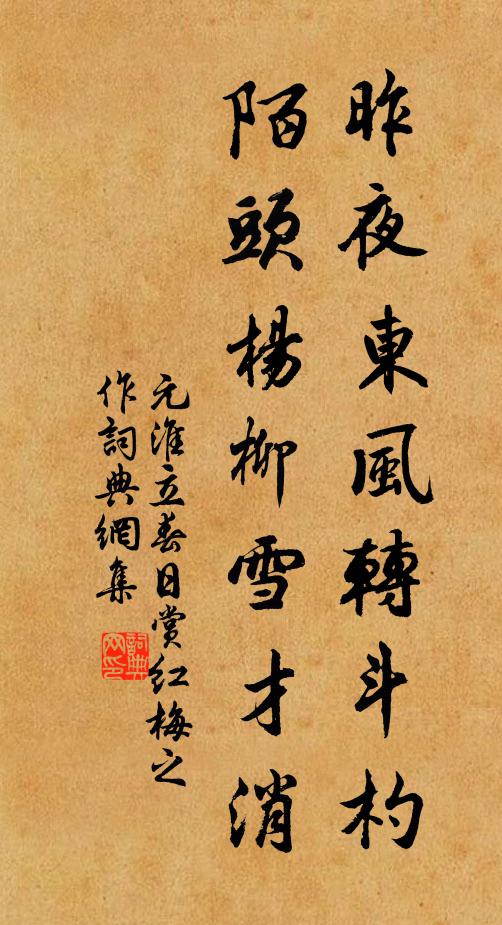 昨夜東風轉斗杓
陌頭楊柳雪才消
元淮立春日賞紅梅之
作詞典網集
詞典網印